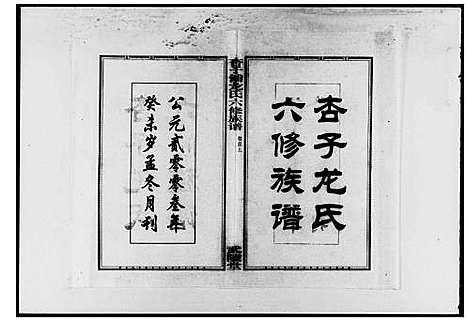 杏子龙氏
六修族谱
杏子龙氏六修族谱
卷首上
武陵堂
公元贰零零叁年
癸未岁孟冬月刊